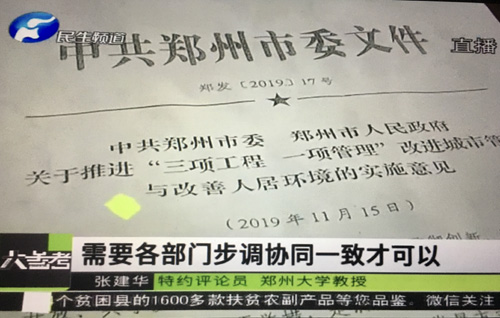 民生频道
直播
中共郑州市委文件
郑发〔2019〕17号
中共郑州市委 郑州市人民政府
关于推进“三项工程 一项管理”改进城市管
与改善人居环境的实施意见
（2019年11月15日）
大参考
需要各部门步调协同一致才可以
张建华 特约评论员 郑州大学教授
个贫困县的1600多款扶贫农副产品等您品鉴。微信关注